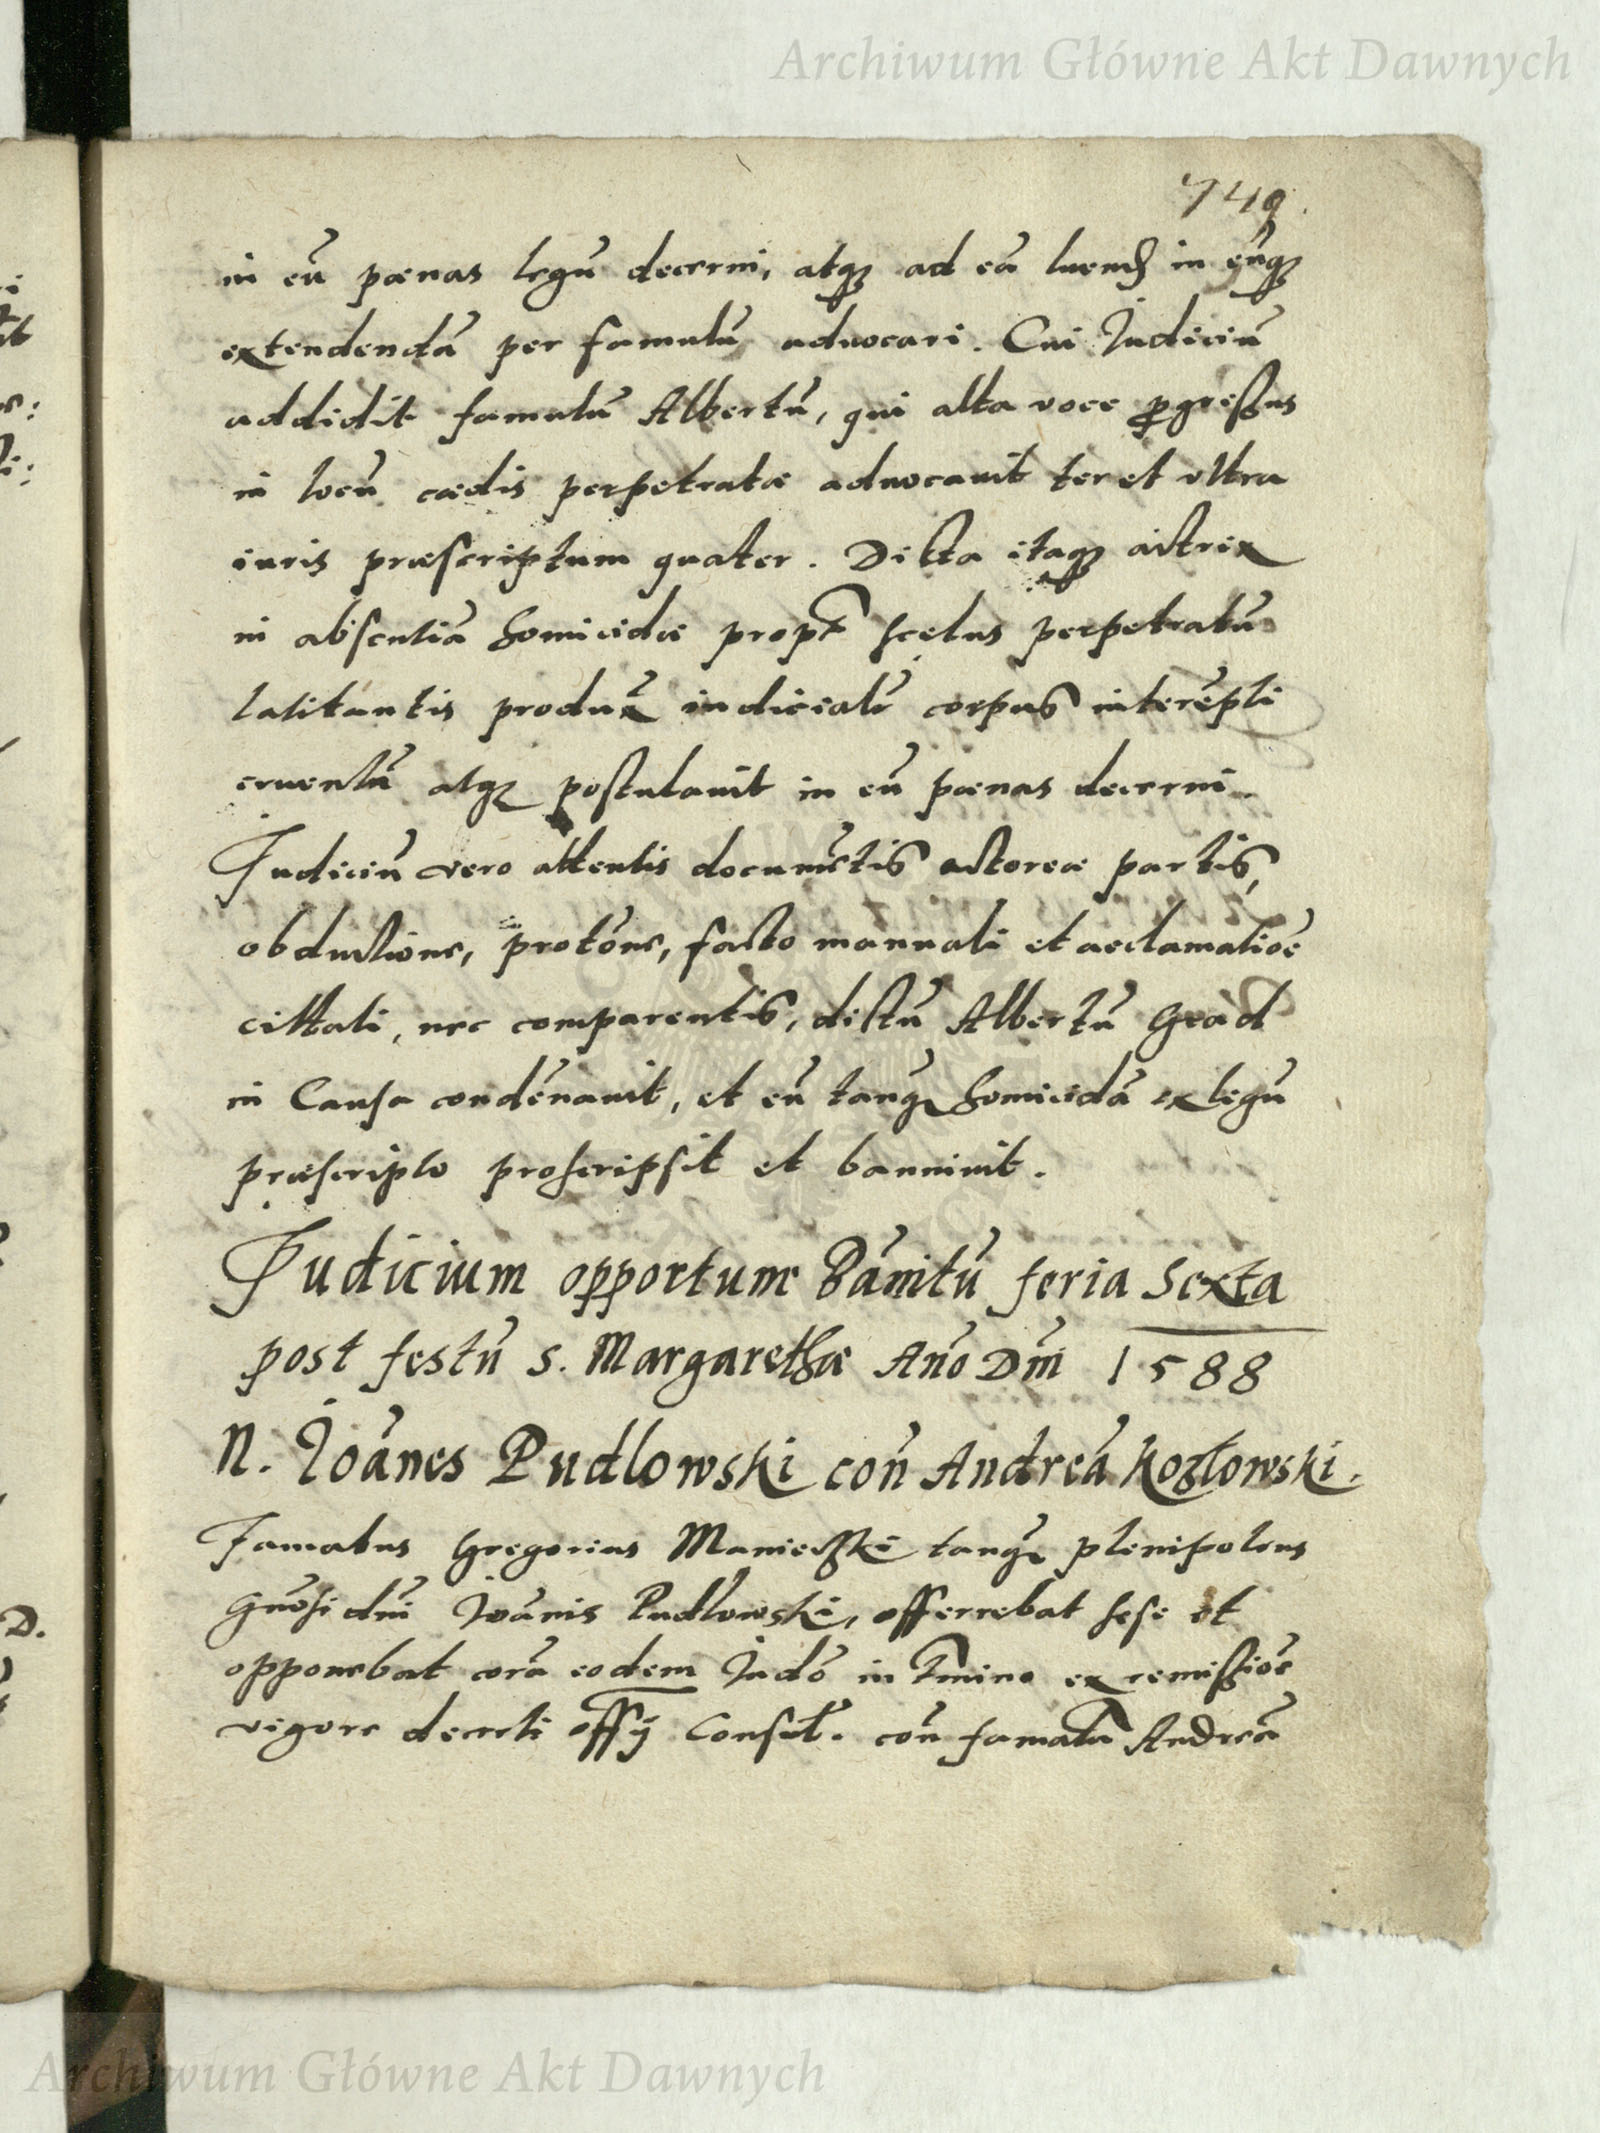 Archiwum Główne Akt Dawnych
749.
in eū pœnas legū decerni, atq₃ ad eā luend in eūq₃
extendendā per famulū aduocari. Cui Iudiciū
addidit famulū Albertū, qui alta voce ꝓgreſsus
in locū cædis perpetratæ aduocauit ter et vltra
iuris præscriptum quater. Dicta itaq₃ actrix
in absentiā homicidæ propt̄ scelus perpetratū
latitantis produx̄ iudicialr̄ corpus interēpti
cruentū atq₃ postulauit in eū pœnas decerni.
Iudiciū vero attentis documētis actoreæ partis,
obductione, protōne, facto manuali et acclamatiōe
cittati, nec comparentis, dictū Albertū Grad
in Causa condēnauit, et eū tanq₃ homicidā ex legū
præscripto proscripsit et banniuit.
Iudicium opportune Bānitū feria Sexta
post festū s. Margarethæ Anō Dm̄ 1588
N. Ioānes Pudlowski con̄ Andreā Kozłowski.
Famatus Gregorius Manieczki tanq₃ plenipotens
Gnōsi dn̄i Ioānis Pudlowski, offerrebat sese et
opponebat corā eodem Iudō in T̄mino ex remiſsiōe
vigore decreti offÿ Consul. con̄ famatū Andreā
Archiwum Główne Akt Dawnych